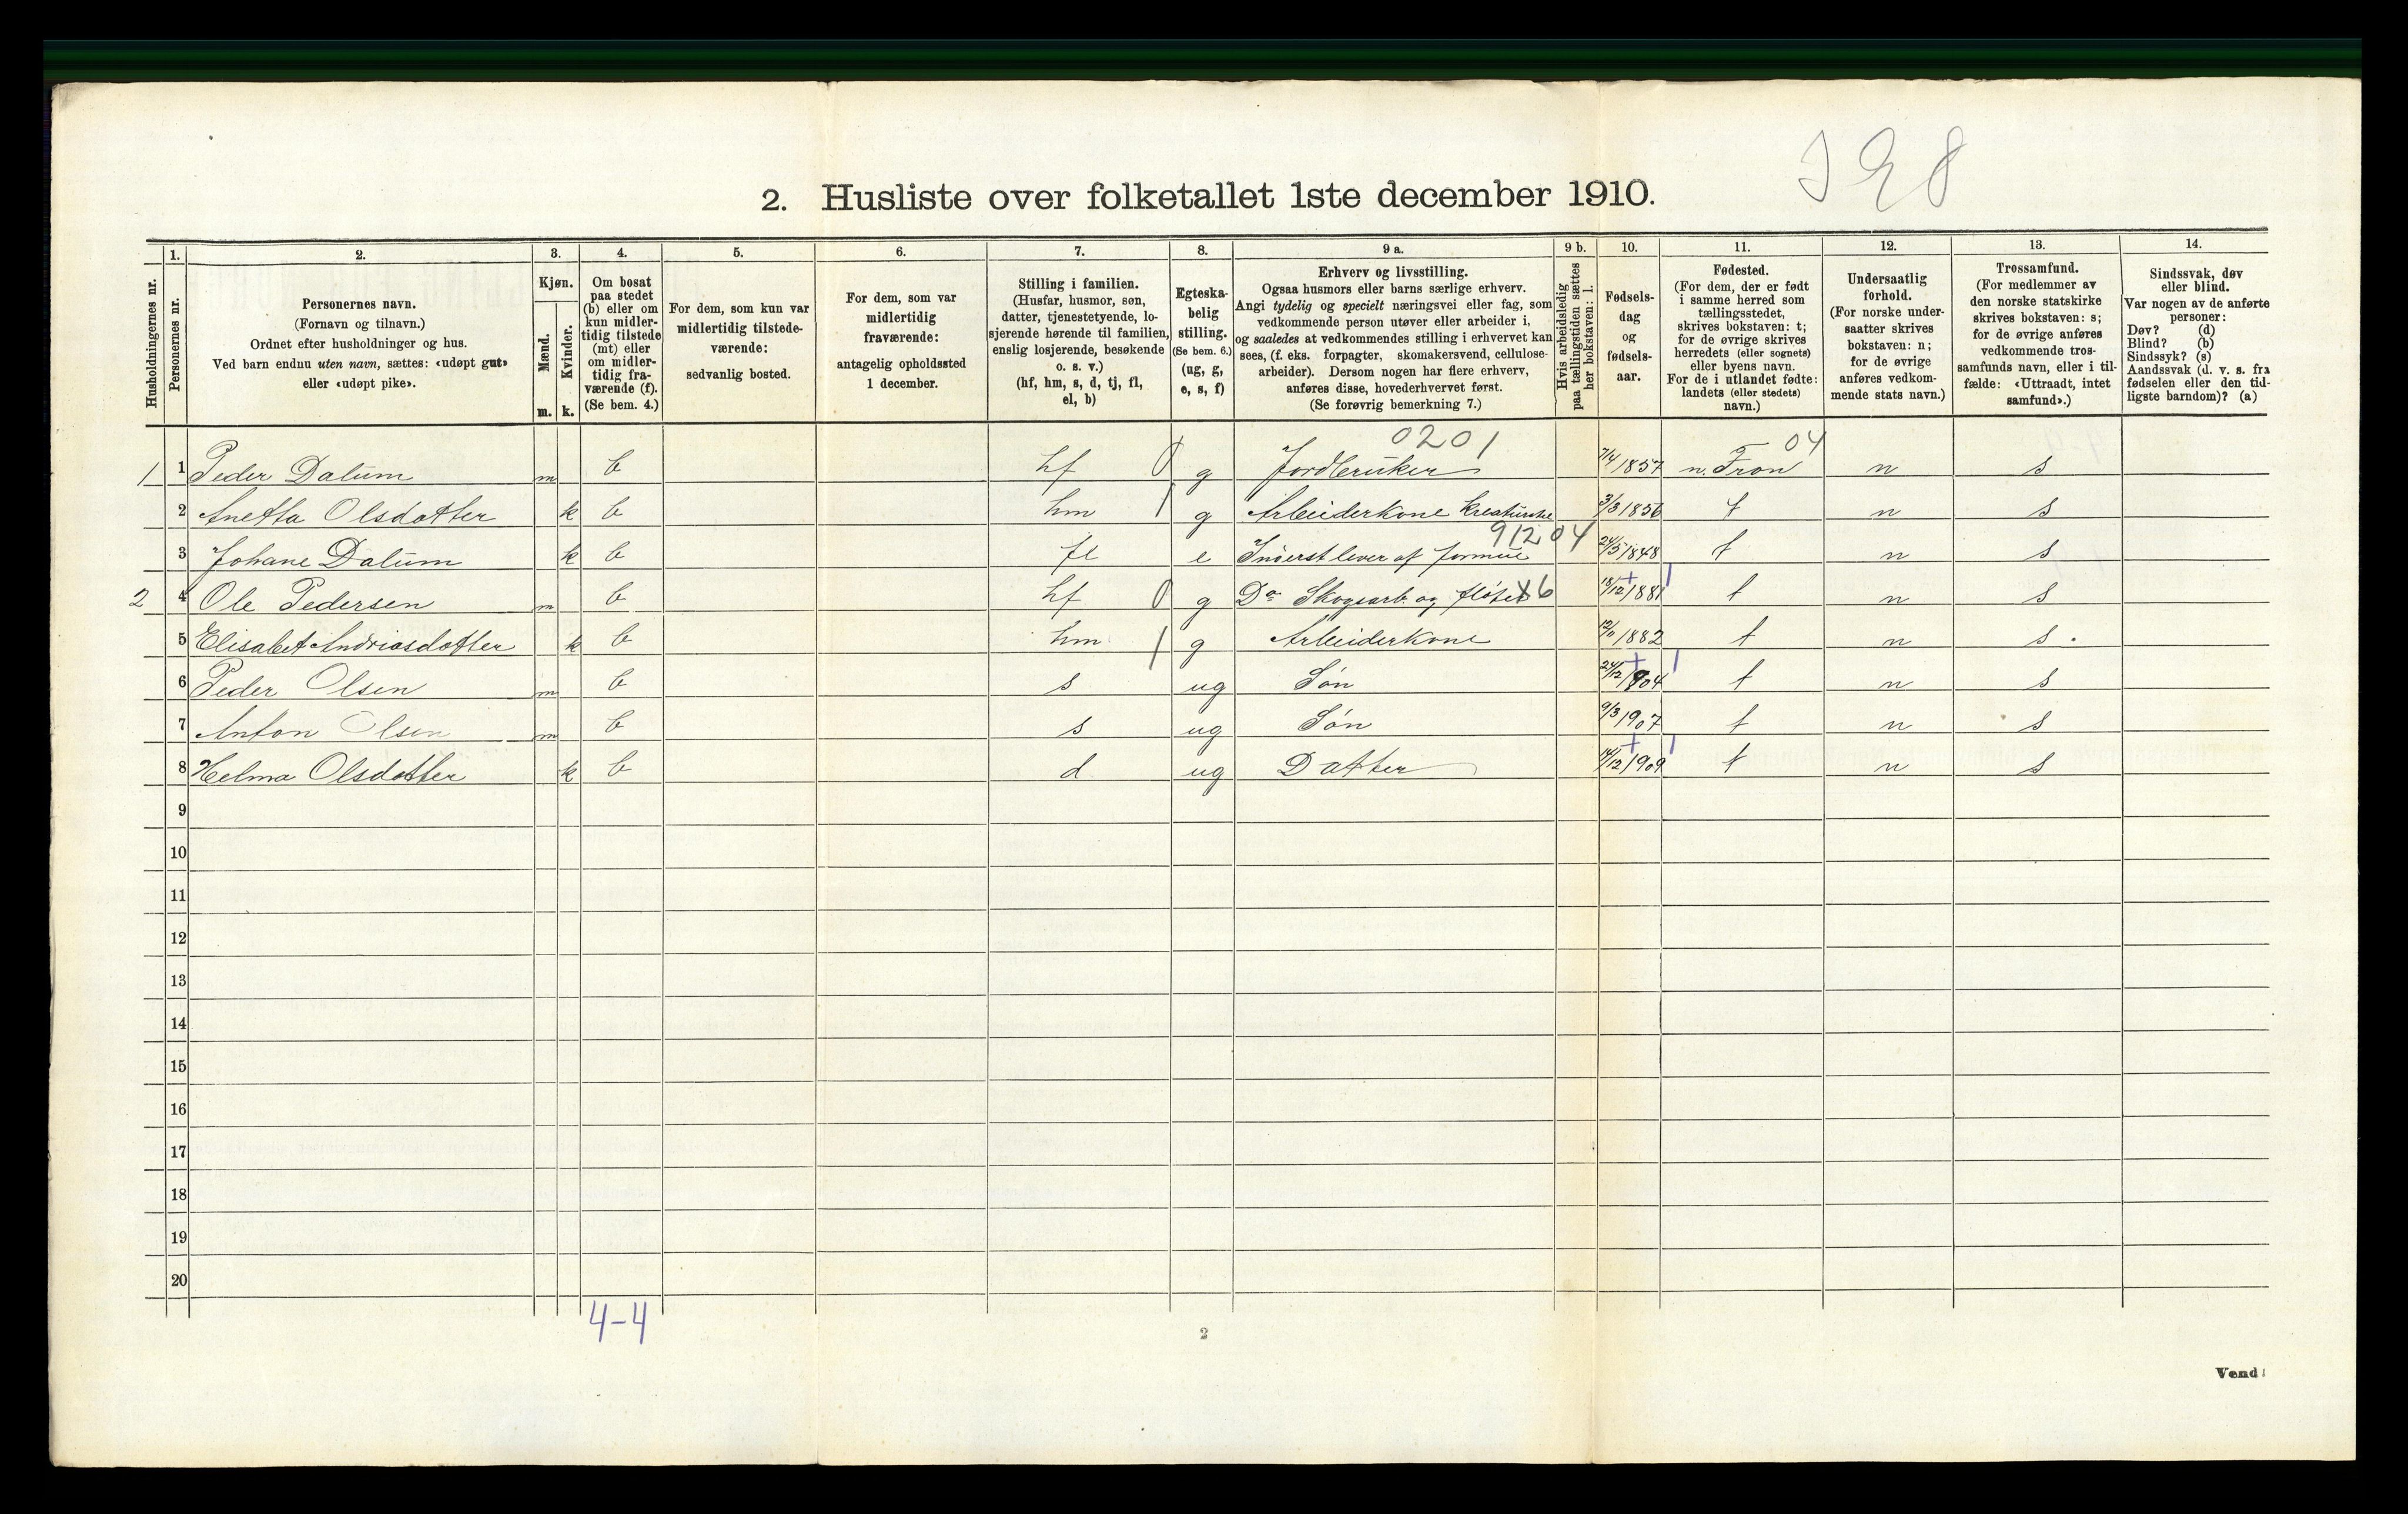 2. Husliste over folketallet 1ste december 1910.
Husholdningernes nr.
1. Personernes nr.
2. Personernes navn.
(Fornavn og tilnavn.)
Ordnet efter husholdninger og hus.
Ved barn endnu uten navn, sættes: «udøpt gut»
eller «udøpt pike».
3. Kjøn.
Mænd. m.
Kvinder. k.
4. Om bosat
paa stedet
(b) eller om
kun midler-
tidig tilstede
(mt) eller
om midler-
tidig fra-
værende (f).
(Se bem. 4.)
5. For dem, som kun var
midlertidig tilstede-
værende:
sedvanlig bosted.
6. For dem, som var
midlertidig
fraværende:
antagelig opholdssted
1 december.
7. Stilling i familien.
(Husfar, husmor, søn,
datter, tjenestetyende, lo-
sjerende hørende til familien,
enslig losjerende, besøkende
o. s. v.)
(hf, hm, s, d, tj, fl,
el, b)
8. Egteska-
belig
stilling.
(Se bem. 6.)
(ug, g,
e, s, f)
9 a. Erhverv og livsstilling.
Ogsaa husmors eller barns særlige erhverv.
Angi tydelig og specielt næringsvei eller fag, som
vedkommende person utøver eller arbeider i,
og saaledes at vedkommendes stilling i erhvervet kan
sees, (f. eks. forpagter, skomakersvend, cellulose-
arbeider). Dersom nogen har flere erhverv,
anføres disse, hovederhvervet først.
(Se forøvrig bemerkning 7.)
9 b. Hvis arbeidsledig
paa tællingstiden sættes
her bokstaven: l.
10. Fødsels-
dag
og
fødsels-
aar.
11. Fødested.
(For dem, der er født
i samme herred som
tællingsstedet,
skrives bokstaven: t;
for de øvrige skrives
herredets (eller sognets)
eller byens navn.
For de i utlandet fødte:
landets (eller stedets)
navn.)
12. Undersaatlig
forhold.
(For norske under-
saatter skrives
bokstaven: n;
for de øvrige
anføres vedkom-
mende stats navn.)
13. Trossamfund.
(For medlemmer av
den norske statskirke
skrives bokstaven: s;
for de øvrige anføres
vedkommende tros-
samfunds navn, eller i til-
fælde: «Uttraadt, intet
samfund».)
14. Sindssvak, døv
eller blind.
Var nogen av de anførte
personer:
Døv? (d)
Blind? (b)
Sindssyk? (s)
Aandssvak (d. v. s. fra
fødselen eller den tid-
ligste barndom)? (a)
0201 04
1 1 Peder Dalum m b hf 0 g Jordbruker 7/4 1857 n. Fron n s
2 Anetta Olsdotter k b hm 1 g Arbeiderkone 3/3 1856 t n s
91204
3 Johane Dalum k b fl e Inderst lever af formue 24/5 1848 t n s
2 4 Ole Pedersen m b hf 0 g Do Skogsarb. og fløter x6 18/12 1881 t n s
5 Elisabet Andriasdotter k b hm 1 g Arbeiderkone 1882 t n s
6 Peder Olsen m b s ug Søn 24/12 1904 t n s
7 Anton Olsen m b s ug Søn 9/3 1907 t n s
8 Helma Olsdotter k b d ug Datter 14/12 1909 t n s
9
10
11
12
13
14
15
16
17
18
19
20
4-4
2
Vend!